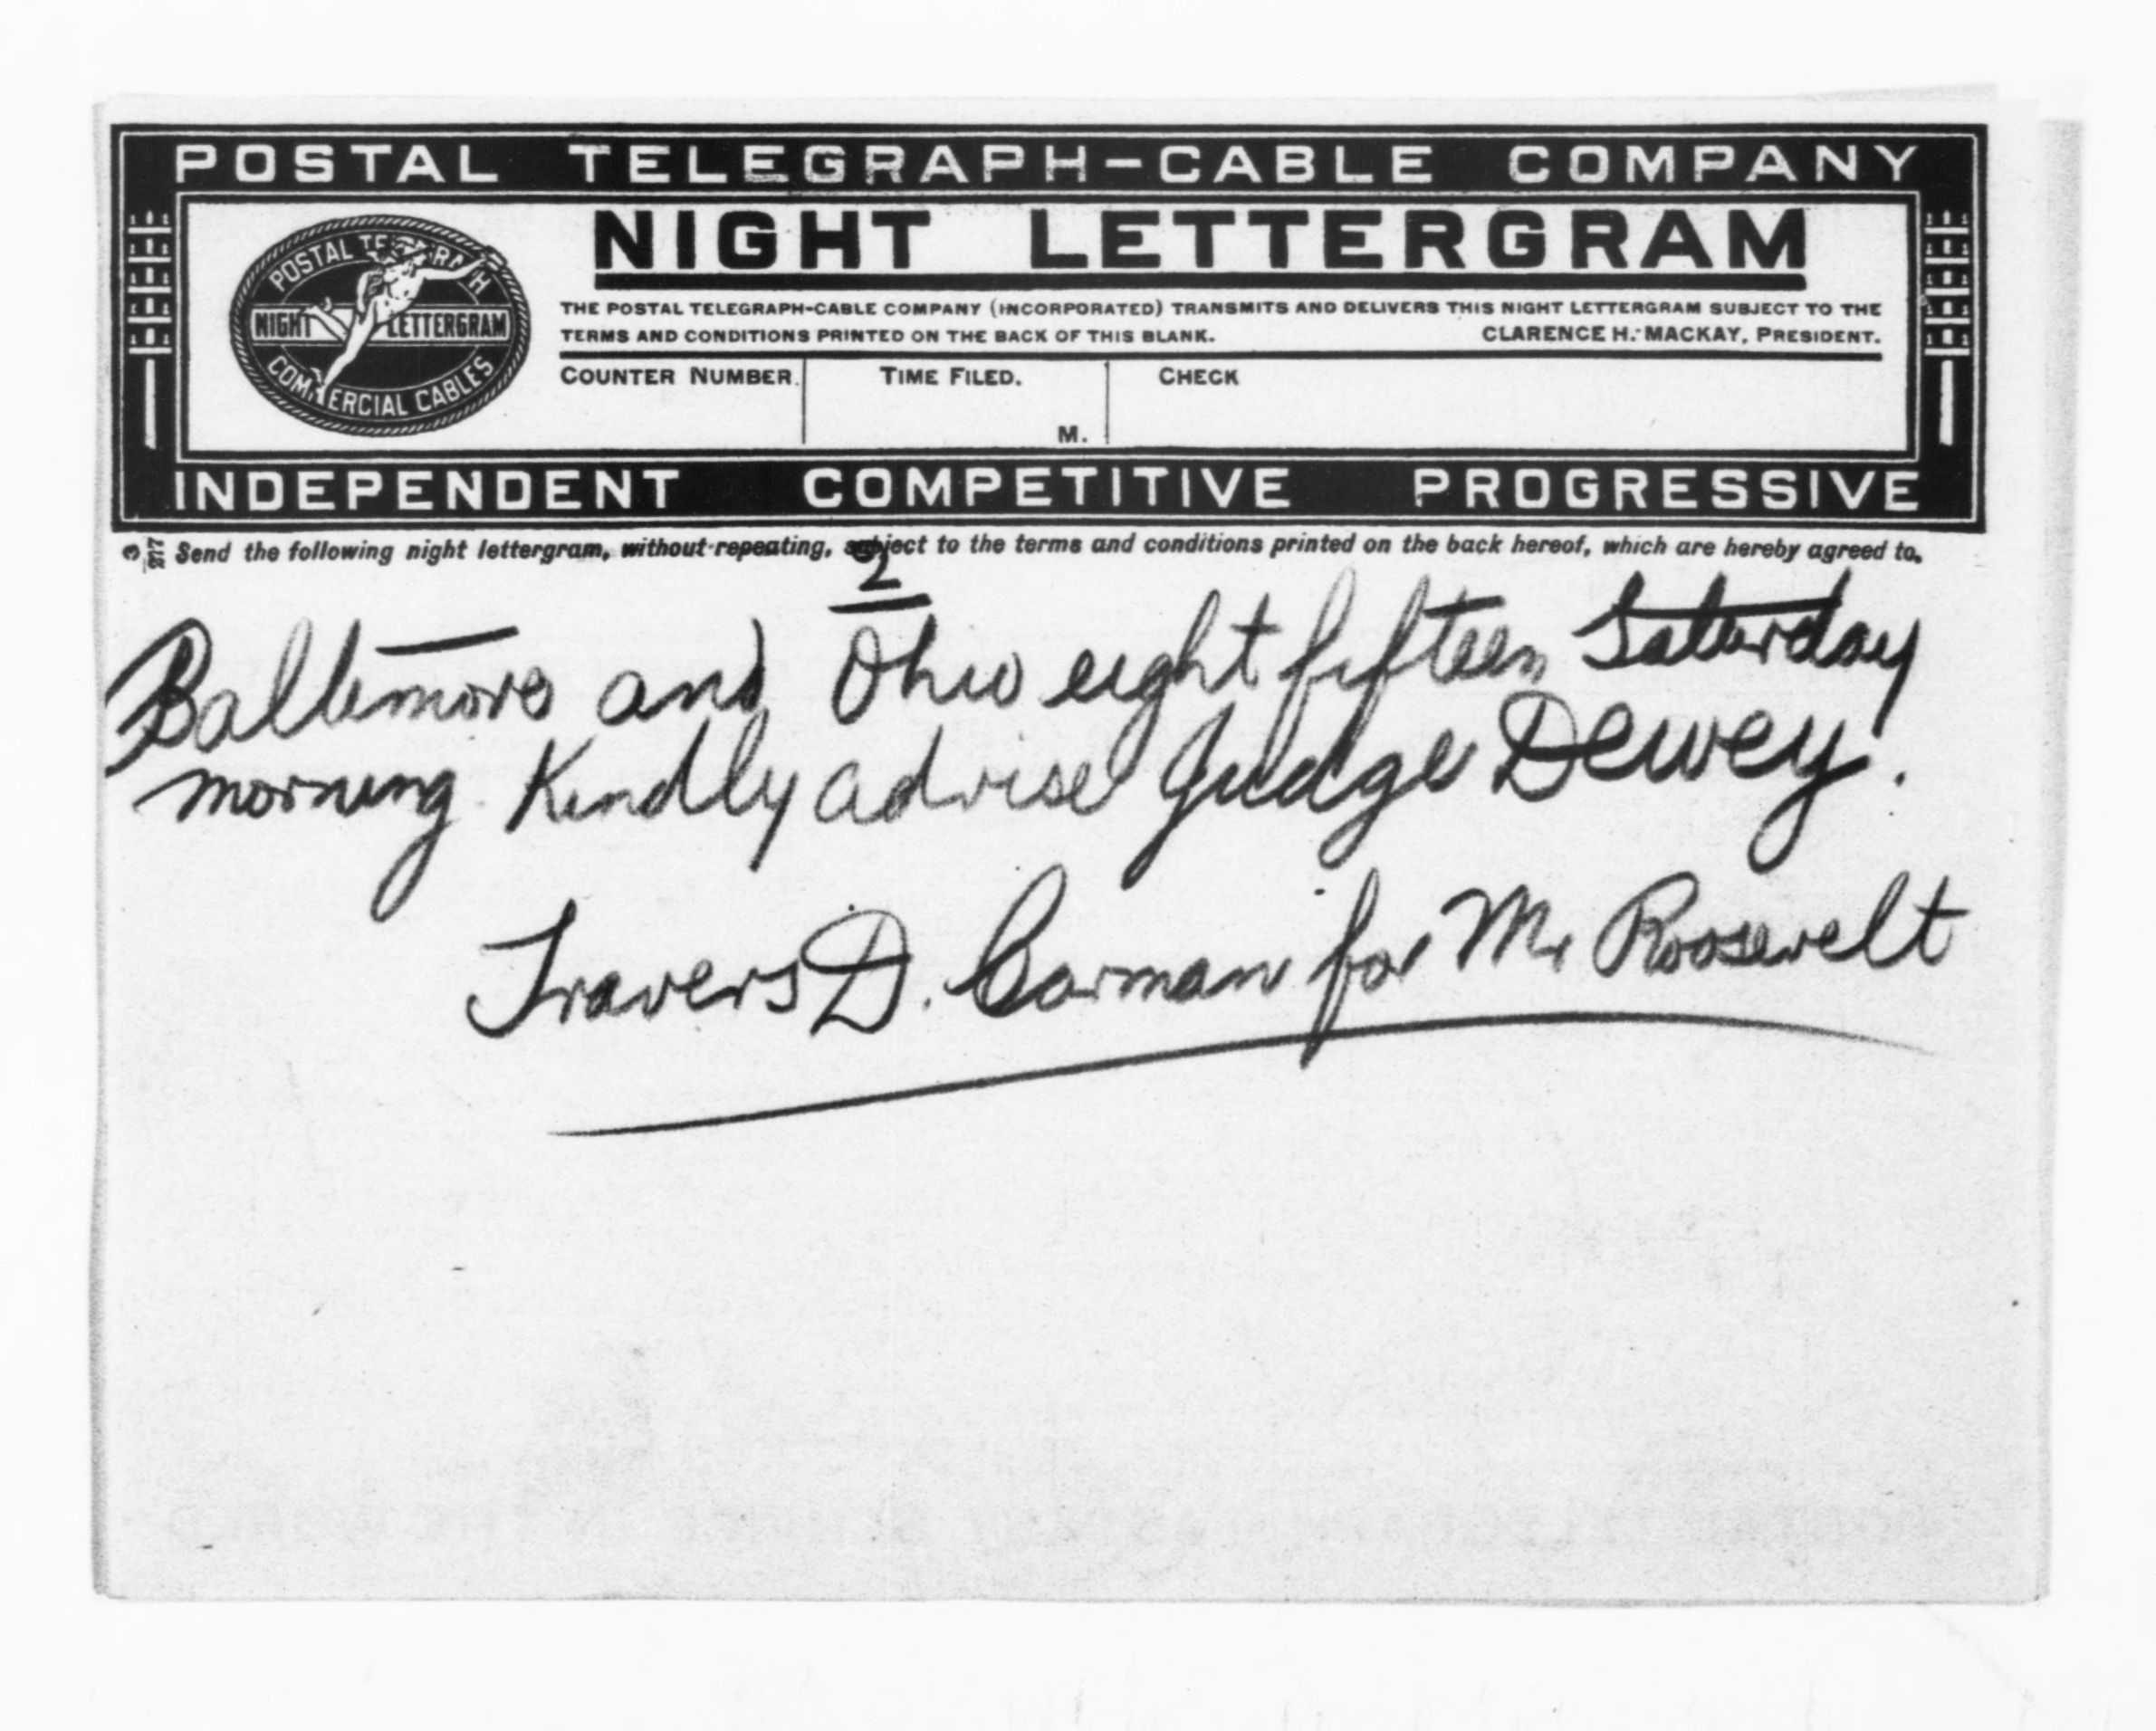 POSTAL TELEGRAPH-CABLE COMPANY
POSTAL TELEGRAPH
NIGHT LETTERGRAM
COMMERCIAL CABLES
NIGHT LETTERGRAM
THE POSTAL TELEGRAPH-CABLE COMPANY (INCORPORATED) TRANSMITS AND DELIVERS THIS NIGHT LETTERGRAM SUBJECT TO THE
TERMS AND CONDITIONS PRINTED ON THE BACK OF THIS BLANK. CLARENCE H. MACKAY, PRESIDENT.
COUNTER NUMBER. TIME FILED. CHECK
M.
INDEPENDENT COMPETITIVE PROGRESSIVE
3 217 Send the following night lettergram, without repeating, subject to the terms and conditions printed on the back hereof, which are hereby agreed to.
2
Baltimore and Ohio eight fifteen Saturday
morning. Kindly advise Judge Dewey.
Travers D. Carman for Mr Roosevelt